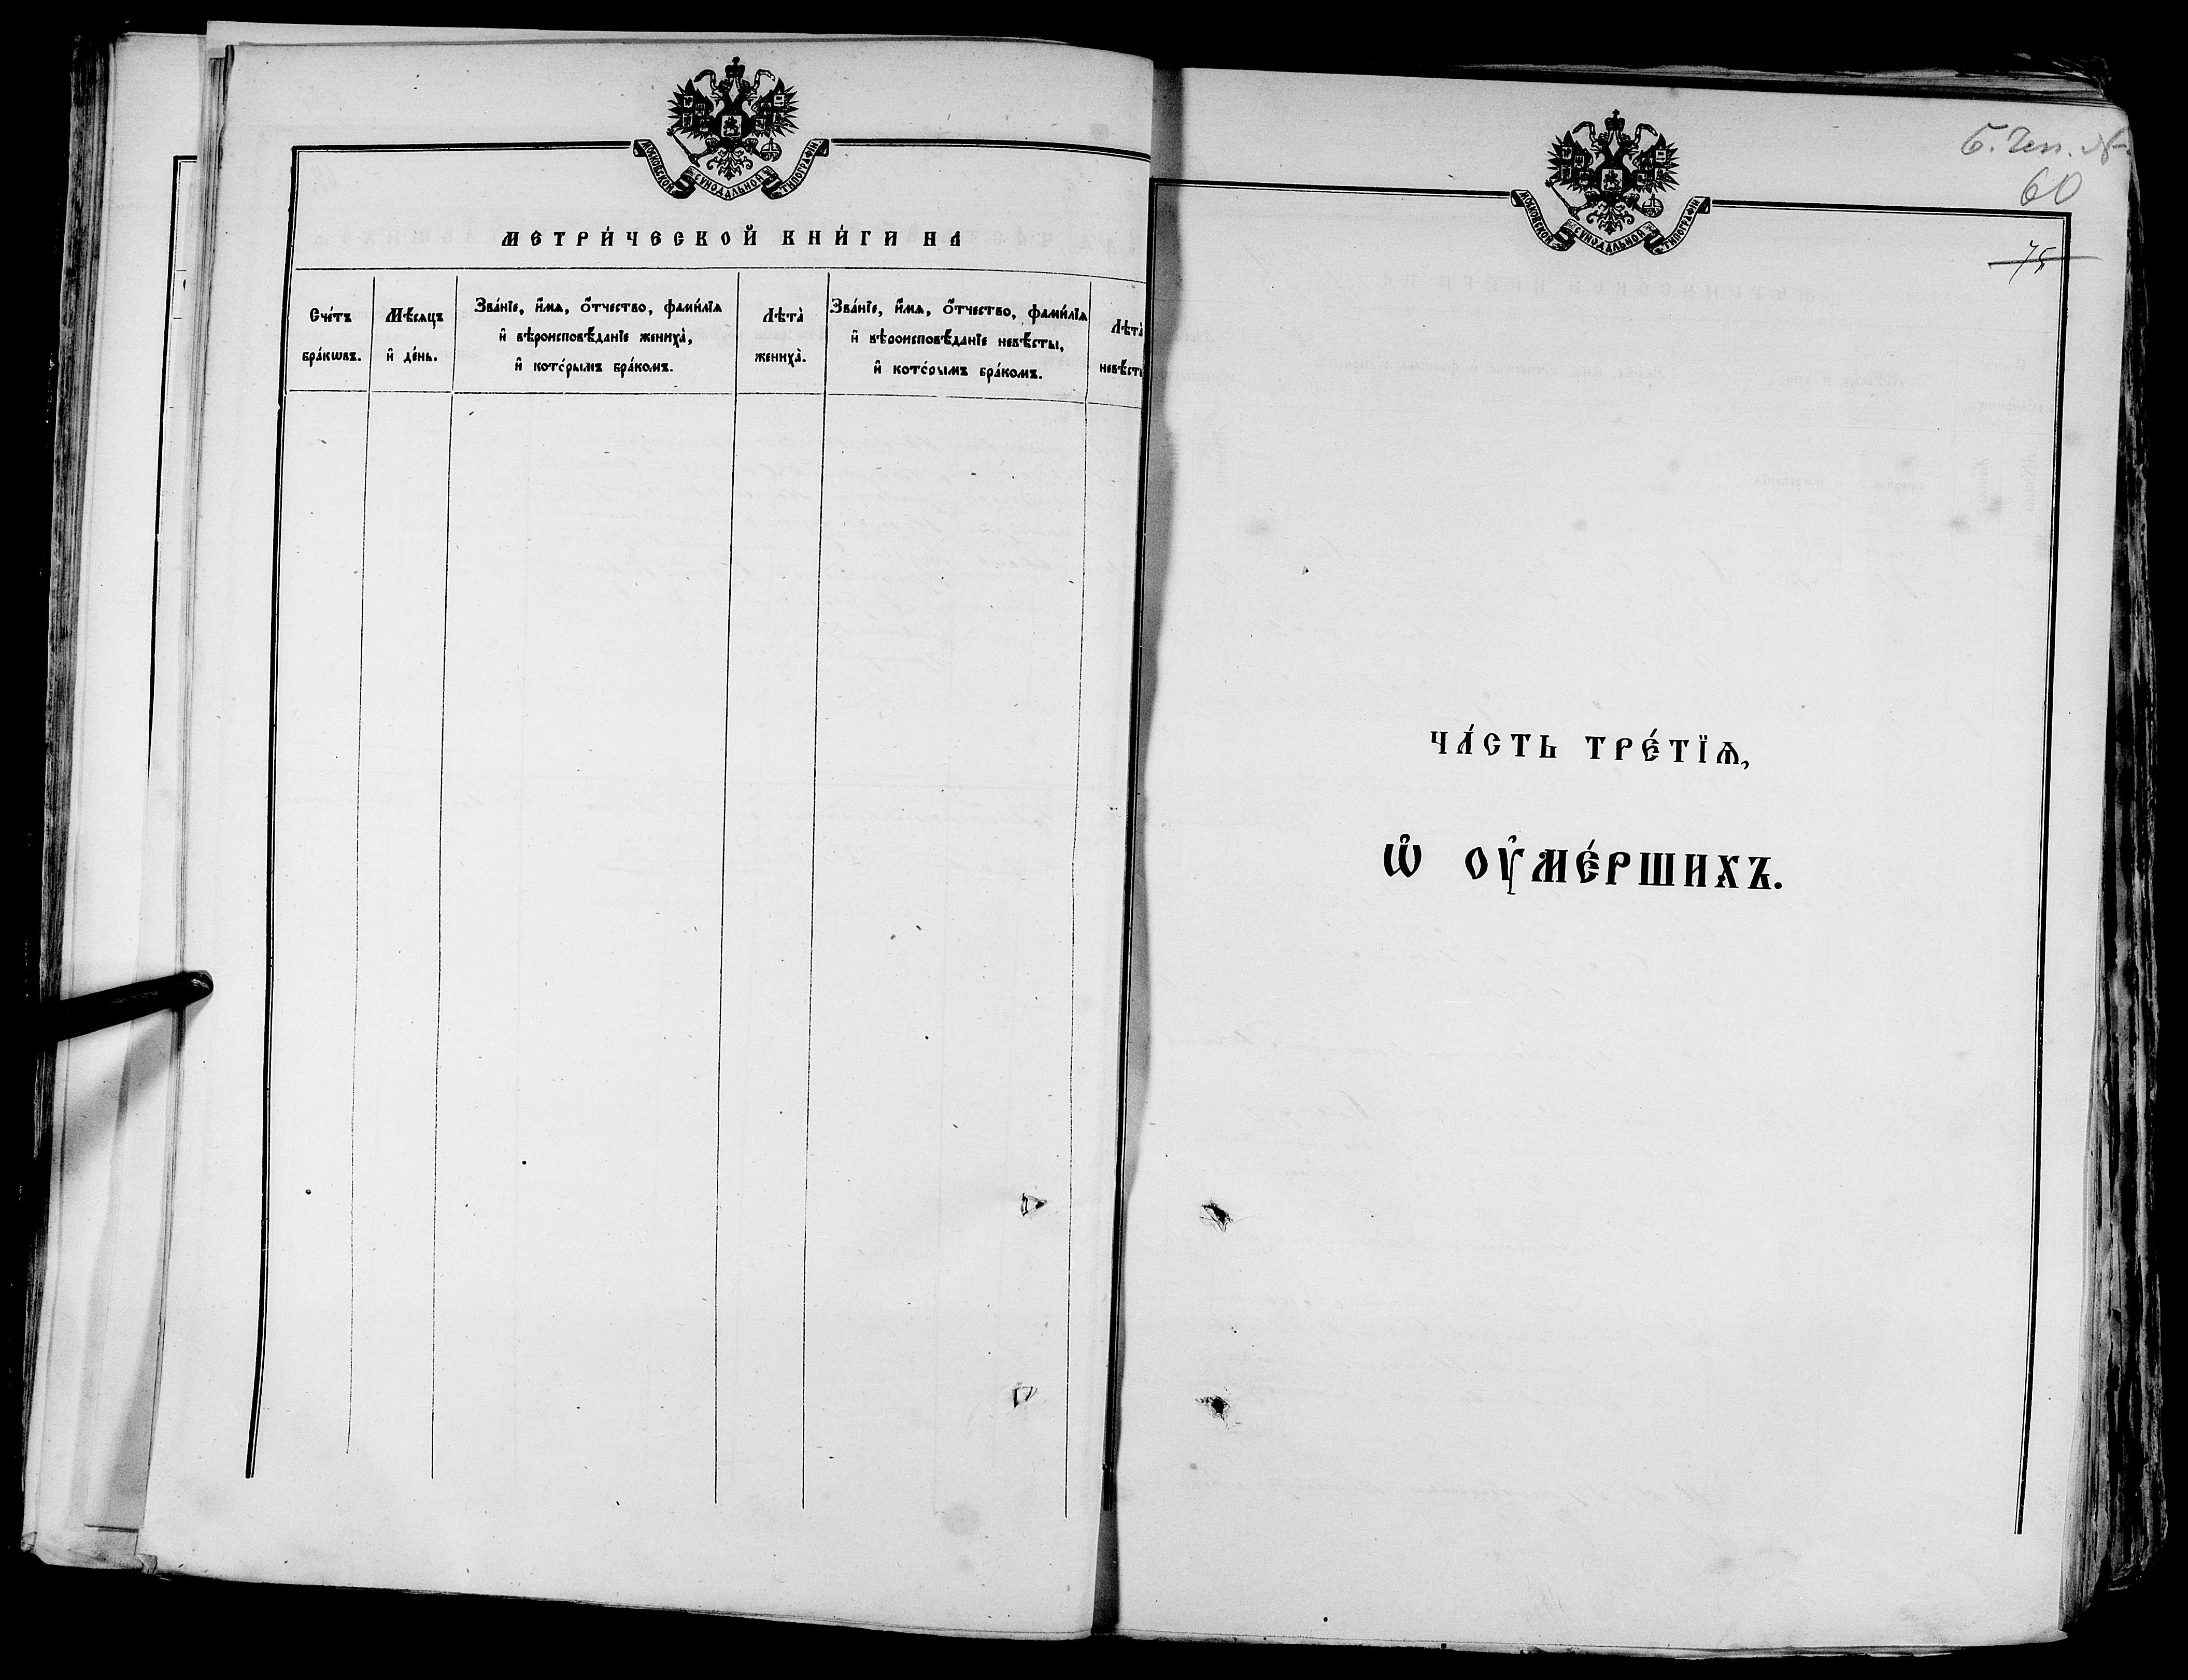 МОСКОВСКОЙ СѴНОДАЛЬНОЙ ТИПОГРАФІИ
МЕТРИ́ЧЕСКОЙ КНИ́ГИ НА
Сче́тъ
бра́кѡвъ.
Мѣ́сяцъ
и҆ де́нь.
Зва́нїе, и҆́мѧ, ѻ҆́тчество, фамѝлїѧ
и҆ вѣроисповѣ́данїе жениха̀,
и҆ кото́рымъ бра́комъ.
Лѣта̀
жениха̀.
Зва́нїе, и҆́мѧ, ѻ҆́тчество, фамѝлїѧ
и҆ вѣроисповѣ́данїе невѣ́сты,
и҆ кото́рымъ бра́комъ.
Лѣта̀
невѣ́ст
МОСКОВСКОЙ СѴНОДАЛЬНОЙ ТИПОГРАФІИ
60
75
ЧА́СТЬ ТРЕ́ТЇѦ,
Ѡ҆ ОУ҆МЕ́РШИХЪ.